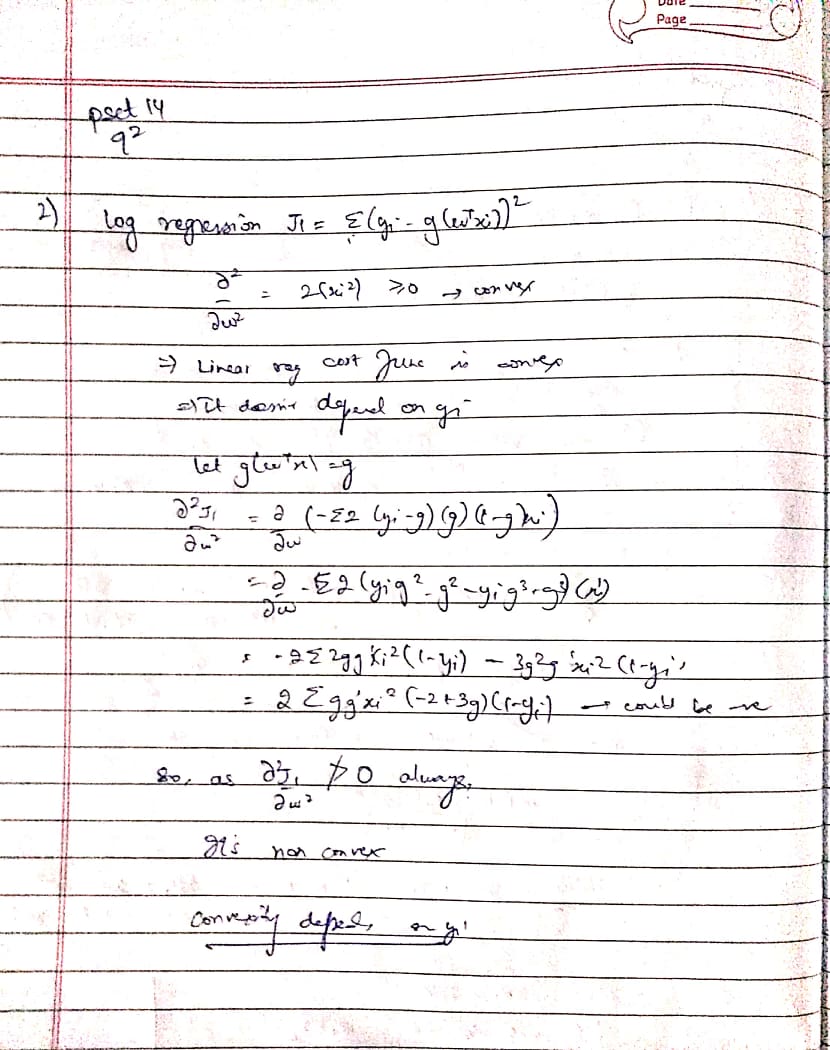 Date
Page
pset 14
q2
2) log regression J1 = Σ(yi - g(wᵀxi))²
i
∂²/∂w² = 2(xi²) ≥0 → convex
⇒ Linear reg cost func is convex
⇒ It doesn't depend on yi
let g(wᵀx) = g
∂²J1/∂w² = ∂/∂w (-Σ2 (yi-g)(g)(1-g)xi)
= ∂/∂w -Σ2(yig² - g² - yig³+g³)(xi)
= -2Σ2gg'xi²(1-yi) - 3g²g'xi²(1-yi)
= 2Σgg'xi²(-2+3g)(1-yi) → could be -ve
So, as ∂²J1/∂w² ≯ 0 always,
It's non convex
Convexity depends on yi